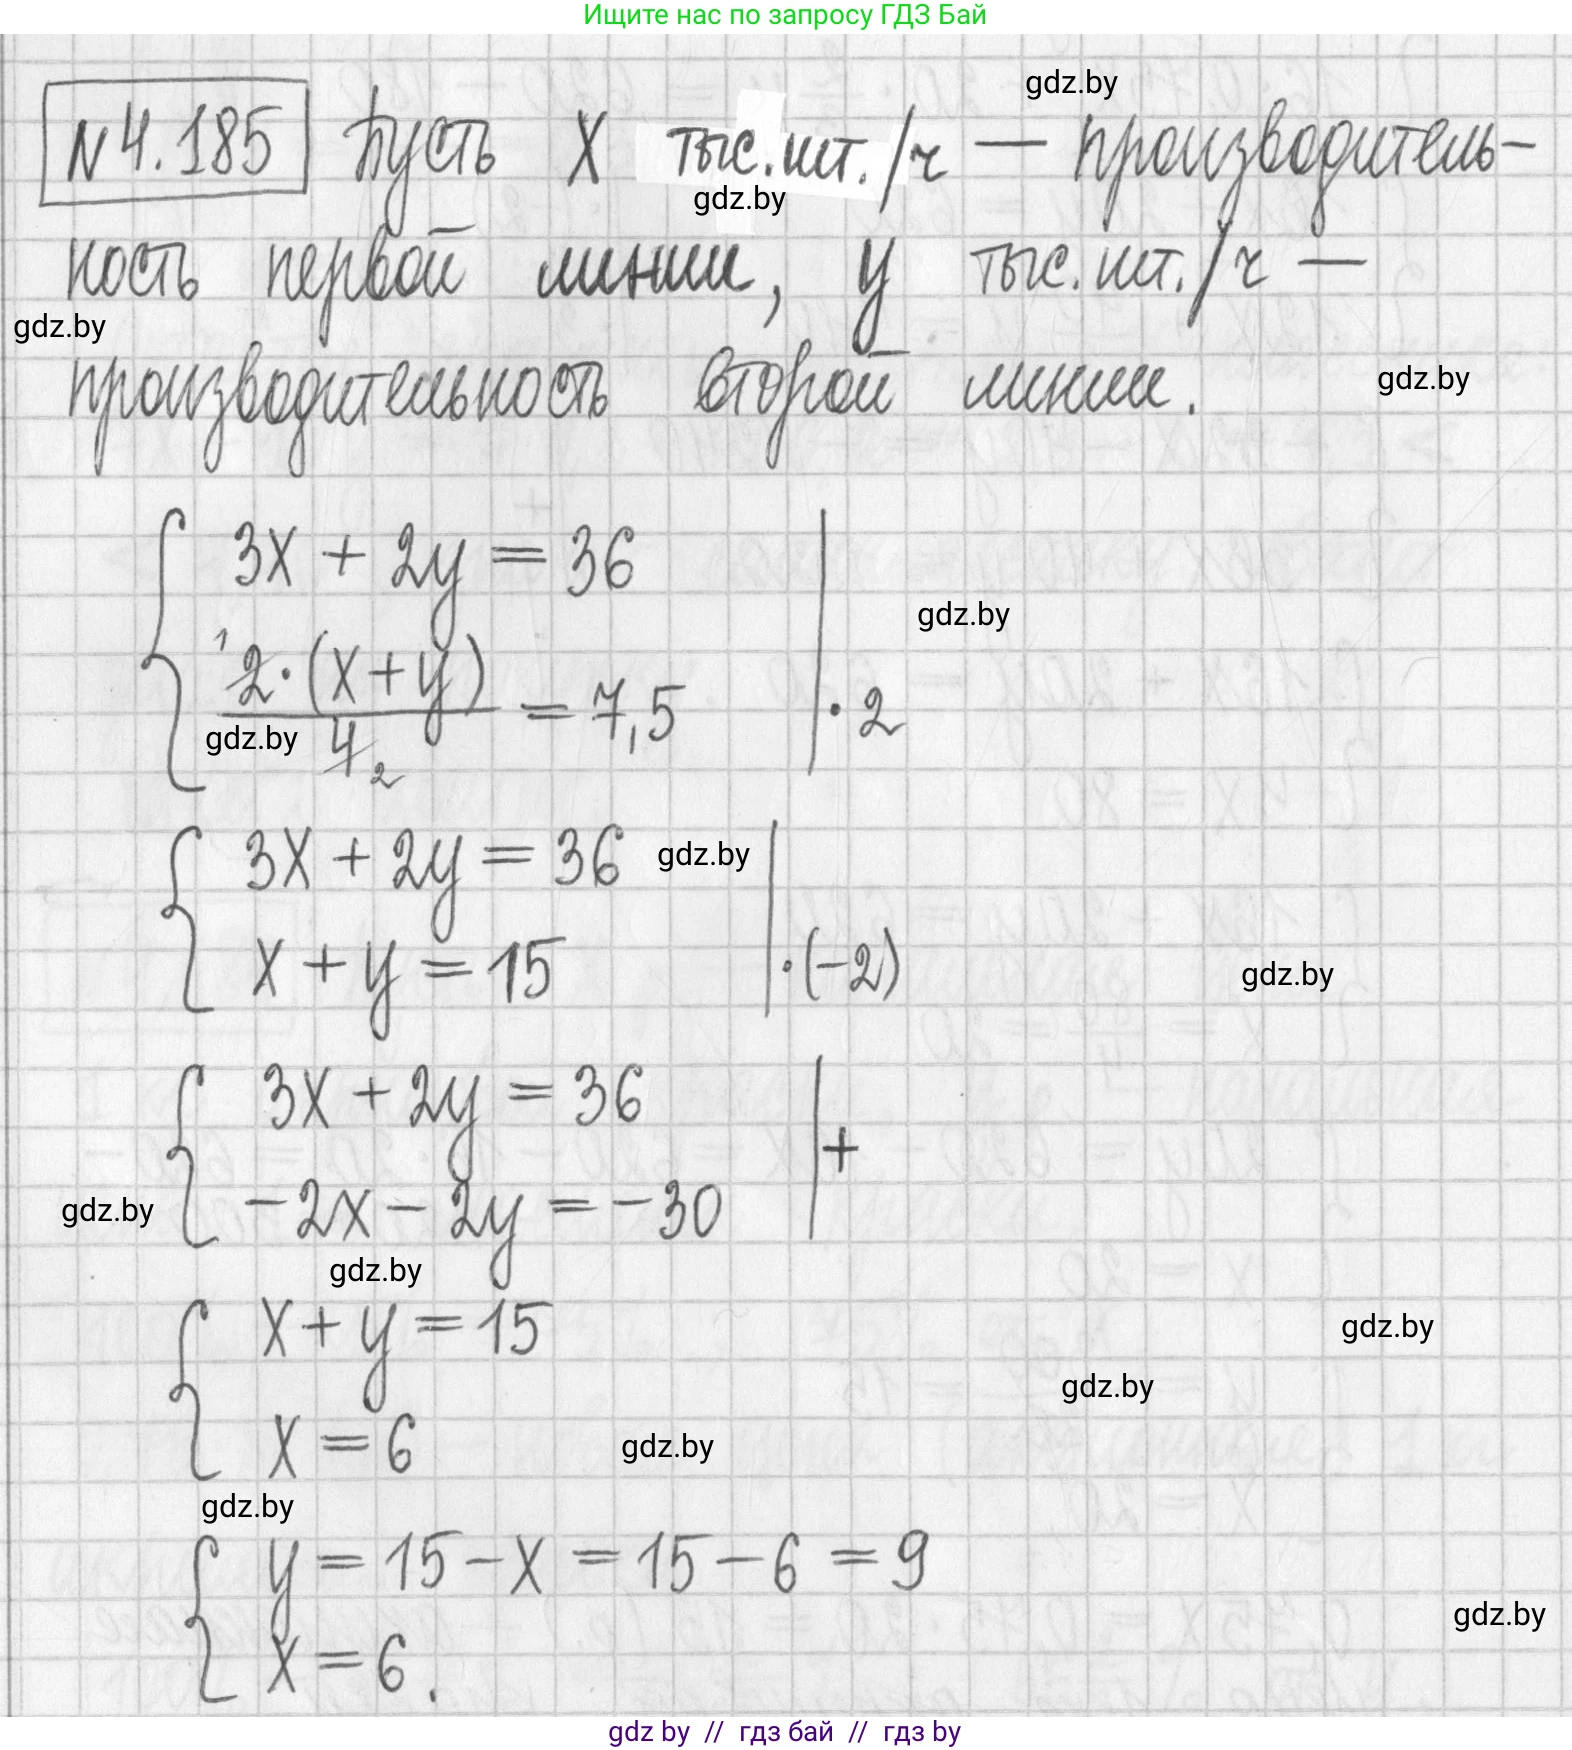 Ищите нас по запросу ГДЗ Бай
gdz.by
№4.185 Пусть x тыс.шт./ч — производитель-
gdz.by
ность первой линии, y тыс.шт./ч —
gdz.by
производительность второй линии.
gdz.by
3x + 2y = 36
gdz.by
1 2·(x+y)
4 2 = 7,5 | · 2
gdz.by
3x + 2y = 36
gdz.by
x + y = 15 | ·(-2)
gdz.by
3x + 2y = 36
+
-2x - 2y = -30
gdz.by
gdz.by
x + y = 15
gdz.by
gdz.by
x = 6
gdz.by
gdz.by
y = 15 - x = 15 - 6 = 9
gdz.by
x = 6.
gdz by // гдз бай // гдз by